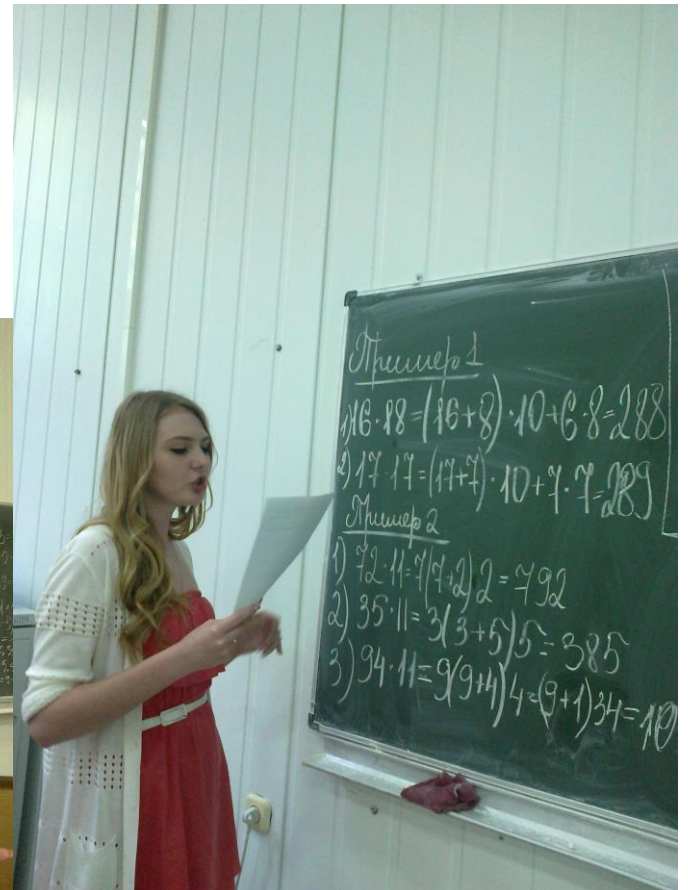 Пример 1
1) 16·18=(16+8)·10+6·8=288
2) 17·17=(17+7)·10+7·7=289
Пример 2
1) 72·11=7(7+2)2=792
2) 35·11=3(3+5)5=385
3) 94·11=9(9+4)4=(9+1)34=10